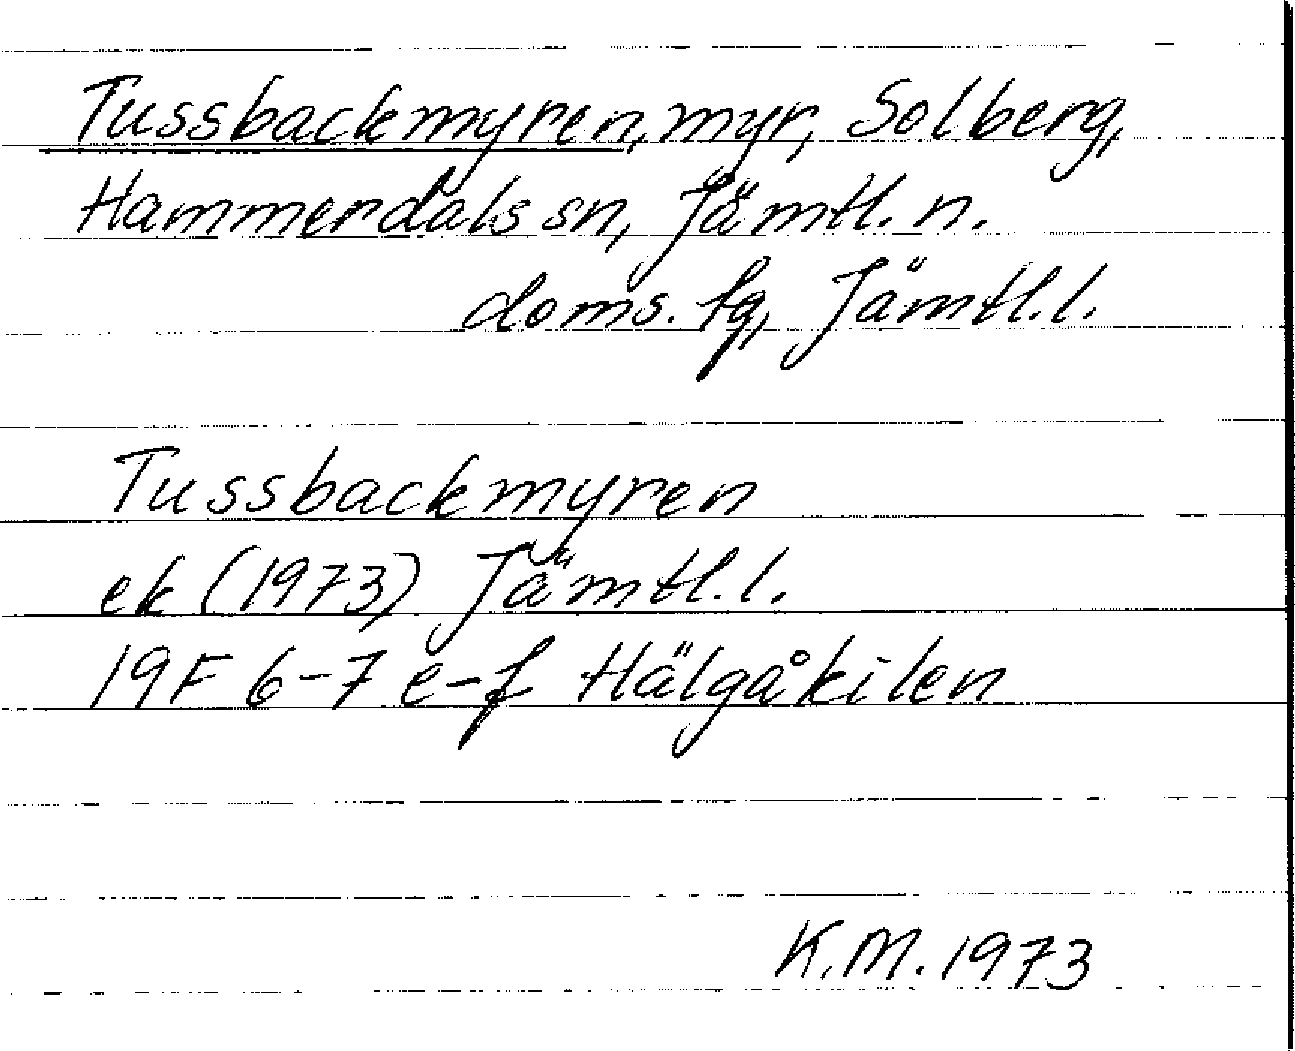 Tussbackmyren, myr, Solberg,
Hammerdals sn, Jämtl. n.
doms. fg, Jämtl. l.
Tussbackmyren
ek (1973) Jämtl. l.
19F 6-7 e-f Hälgåkilen
K.M. 1973